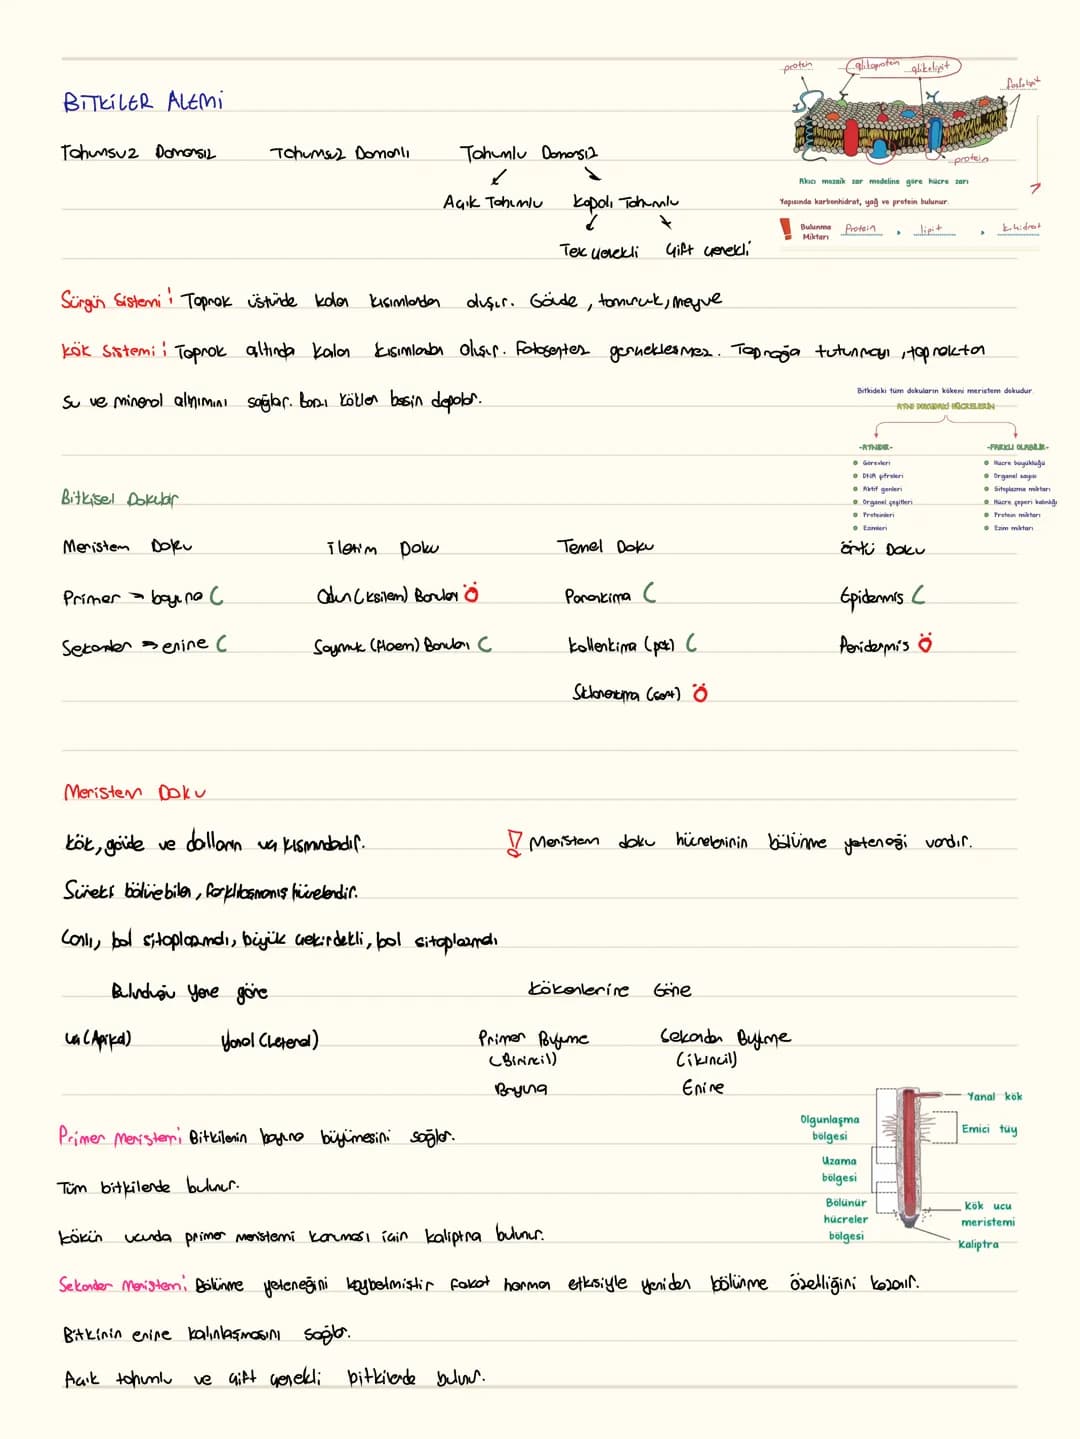 BİTKİLER ALEMİ
protein
glikoprotein
glikolipit
fosfolipit
protein
Akıcı mozaik zar modeline göre hücre zarı
Yapısında karbonhidrat, yağ ve protein bulunur.
! Bulunma Miktarı Protein , lipit , k.hidrat
Tohumsuz Damarsız Tohumsuz Damarlı Tohumlu Damarsız
Açık Tohumlu Kapalı Tohumlu
Tek çenekli Çift çenekli
Sürgün Sistemi: Toprak üstünde kalan kısımlardan oluşur. Gövde, tomurcuk, meyve
Kök Sistemi: Toprak altında kalan kısımlardan oluşur. Fotosentez gerçekleşmez. Toprağa tutunmayı, topraktan
su ve mineral alınımını sağlar. Bazı kökler besin depolar.
Bitkideki tüm dokuların kökeni meristem dokudur.
AYNI DOKUDAKİ HÜCRELERİN
-AYNIDIR- -FARKLI OLABİLİR-
Görevleri Hücre büyüklüğü
DNA şifreleri Organel sayısı
Aktif genleri Sitoplazma miktarı
Organel çeşitleri Hücre çeperi kalınlığı
Proteinleri Protein miktarı
Enzimleri Ezim miktarı
Bitkisel Dokular
Meristem Doku İletim Doku Temel Doku Örtü Doku
Primer → boyuna C Odun (ksilem) Boruları Ö Parankima C Epidermis C
Sekonder → enine C Soymuk (floem) Boruları C Kollenkima (pek) C Peridermis Ö
Sklerenkima (sert) Ö
Meristem Doku
Kök, gövde ve dalların uç kısmındadır. ! Meristem doku hücrelerinin bölünme yeteneği vardır.
Sürekli bölünebilen, farklılaşmamış hücrelerdir.
Canlı, bol sitoplazmalı, büyük çekirdekli, bol sitoplazmalı
Bulunduğu Yere göre Kökenlerine Göre
Uç (Apikal) Yanal (Lateral) Primer Büyüme Sekonder Büyüme
(Birincil) (İkincil)
Boyuna Enine
Primer Meristem: Bitkilerin boyuna büyümesini sağlar.
Tüm bitkilerde bulunur.
Kökün ucunda primer meristemi korunması için kaliptra bulunur.
Yanal kök
Olgunlaşma bölgesi
Emici tüy
Uzama bölgesi
Bölünür hücreler bölgesi
Kök ucu meristemi
Kaliptra
Sekonder Meristem: Bölünme yeteneğini kaybetmiştir fakat hormon etkisiyle yeniden bölünme özelliğini kazanır.
Bitkinin enine kalınlaşmasını sağlar.
Açık tohumlu ve çift çenekli bitkilerde bulunur.